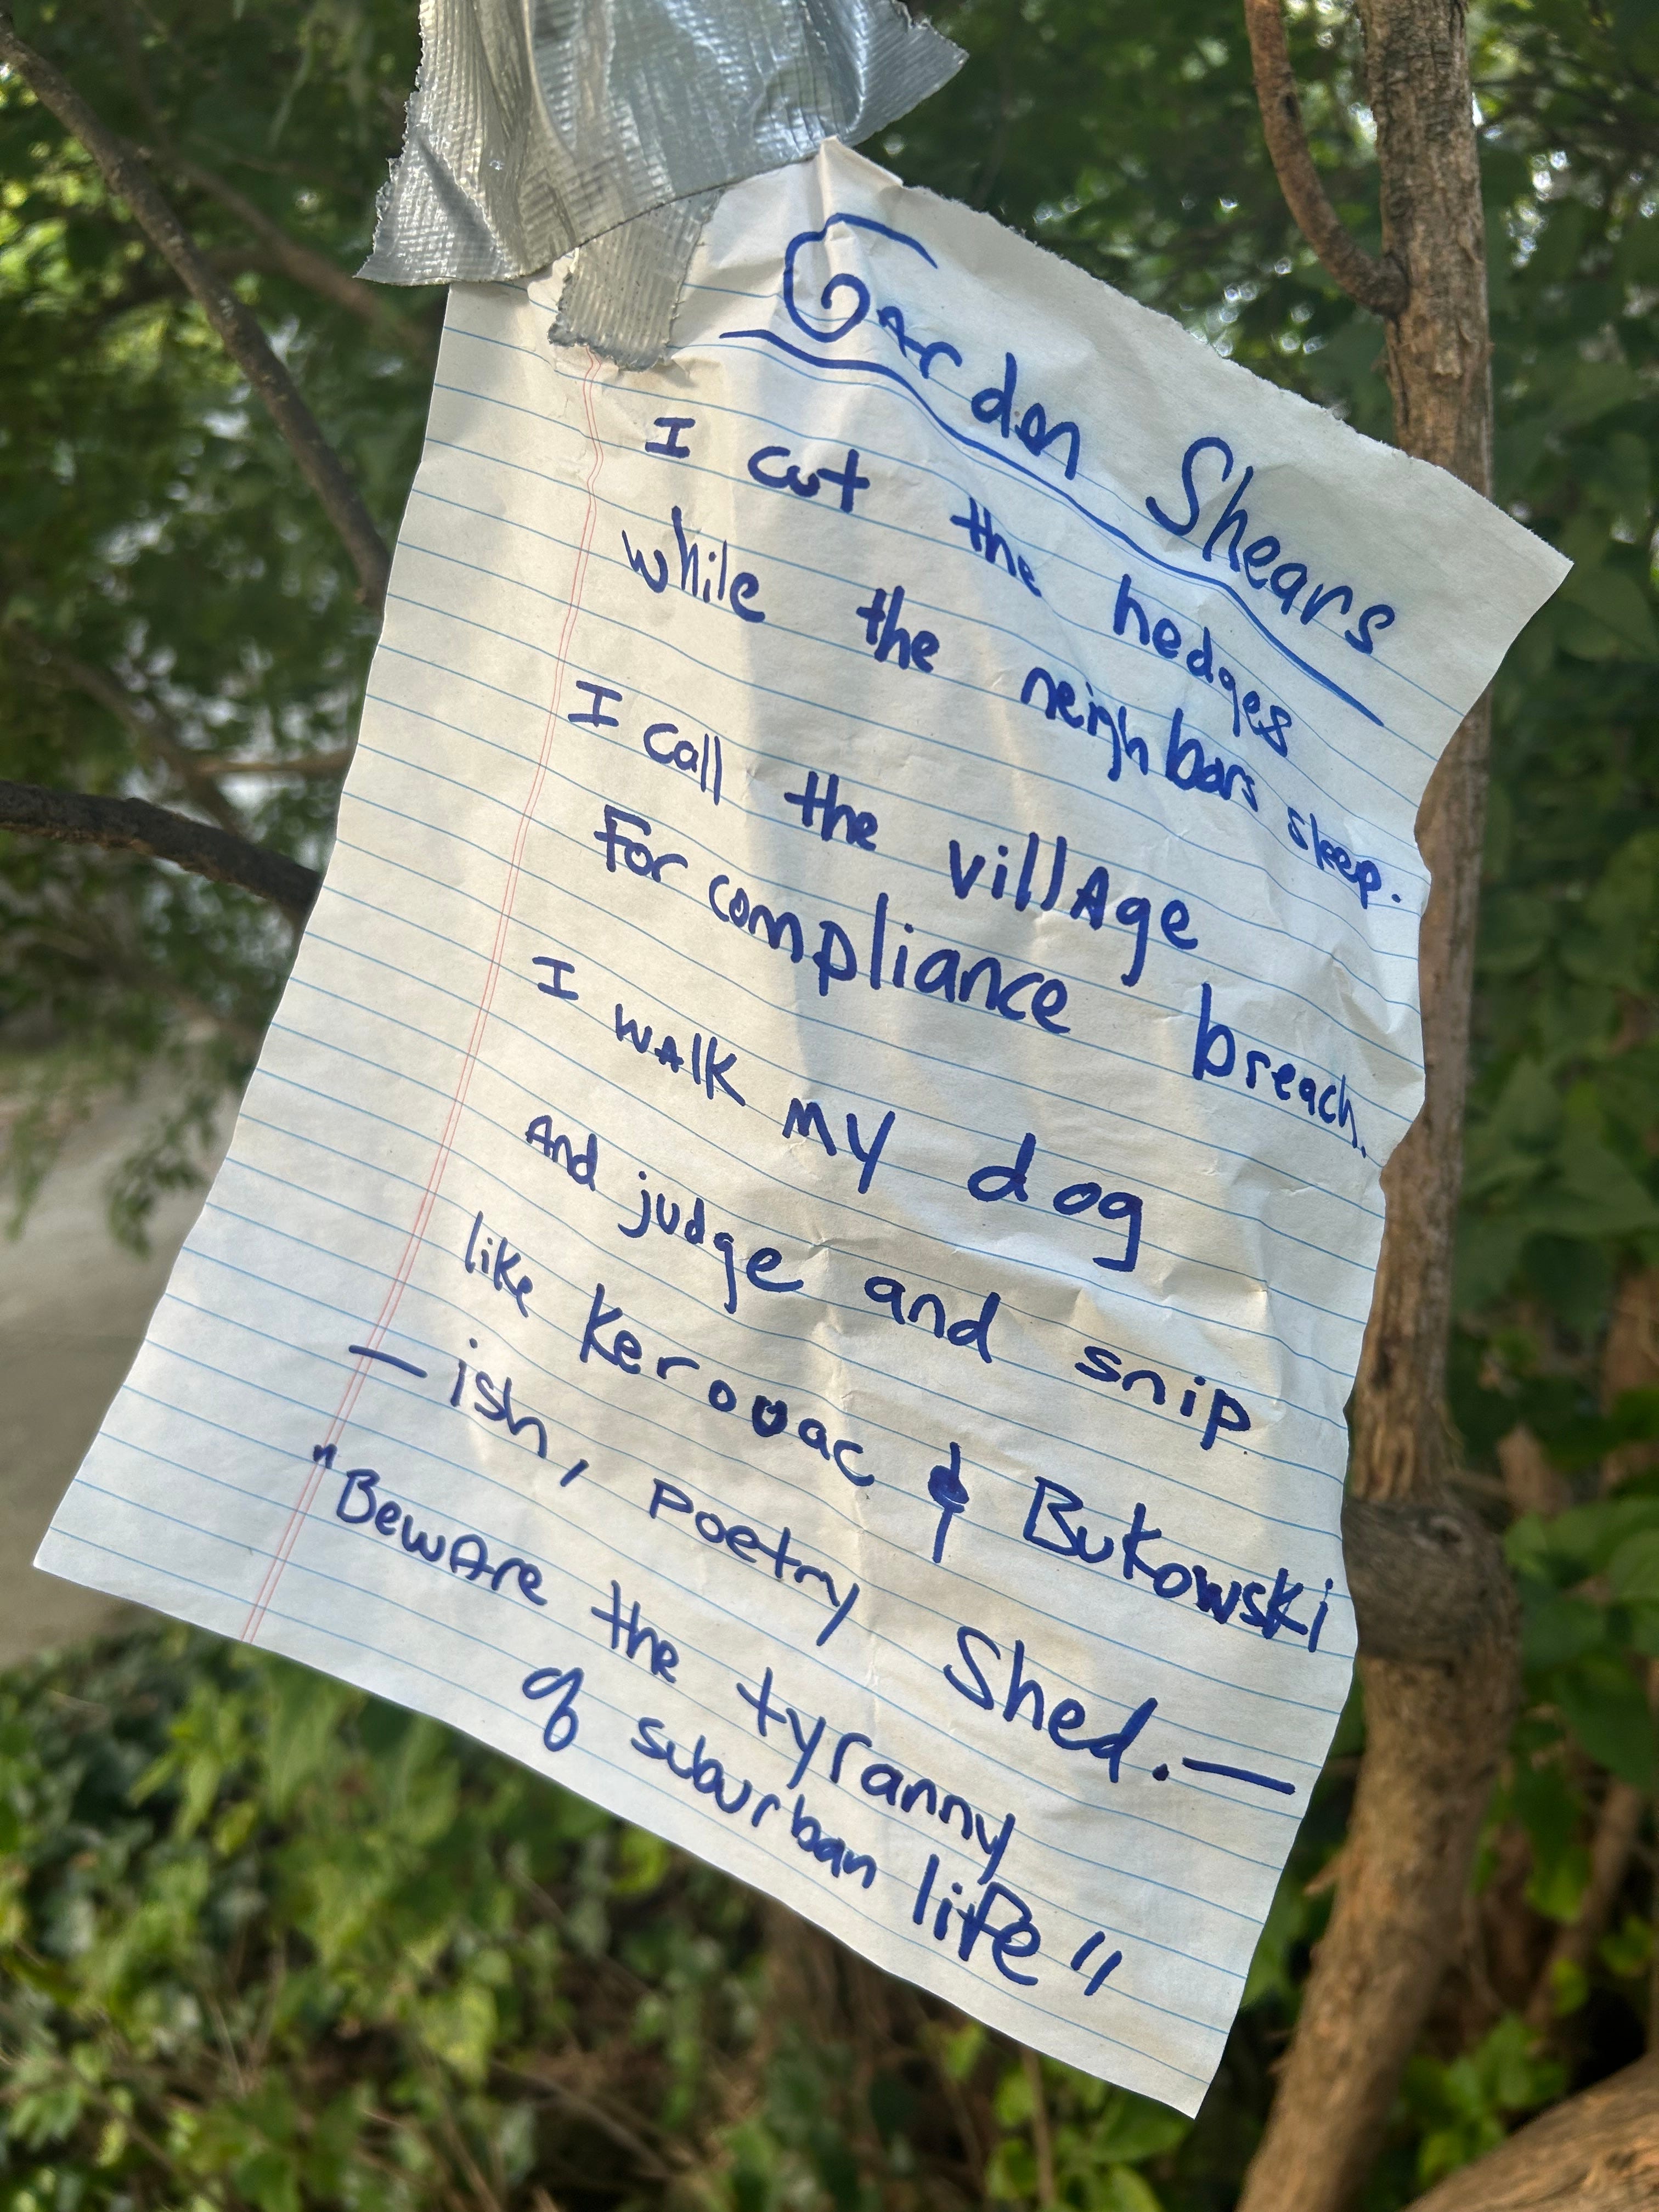 Garden Shears
I cut the hedges
while the neighbors sleep.
I call the villAge
For compliance breach.
I wAlk my dog
And judge and snip.
like Kerouac & Bukowski
—ish, Poetry Shed.—
"BewAre the tyranny
of suburban life"